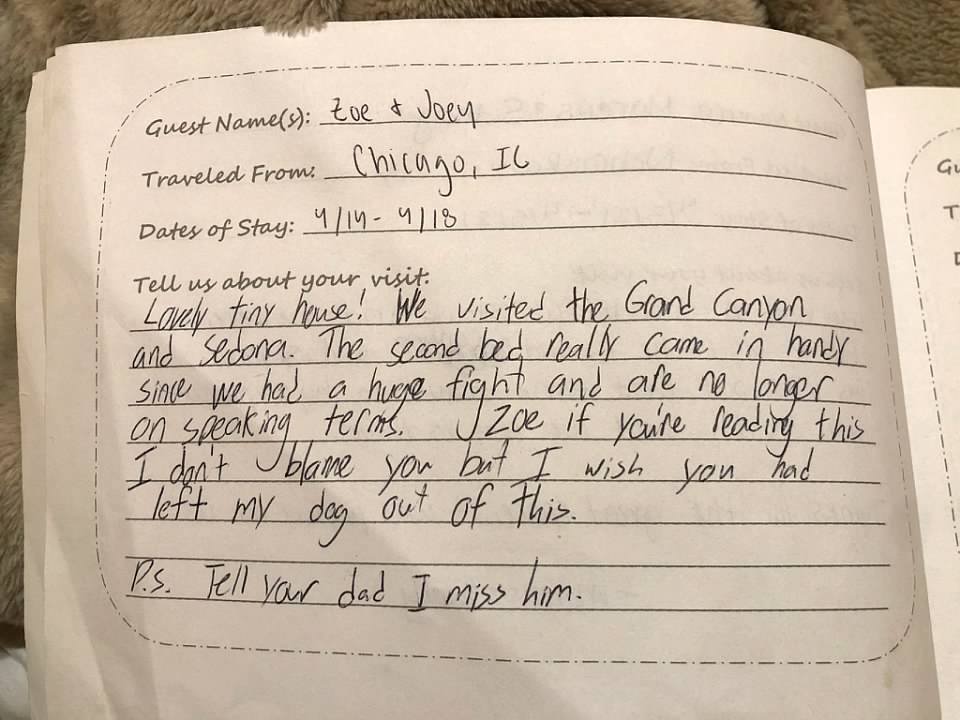 Guest Name(s): Zoe + Joey
Traveled From: Chicago, IL
Dates of Stay: 4/14 - 4/18
Tell us about your visit:
Lovely tiny house! We visited the Grand Canyon
and Sedona. The second bed really came in handy
since we had a huge fight and are no longer
on speaking terms. Zoe if you're reading this
I don't blame you but I wish you had
left my dog out of this.
P.s. Tell your dad I miss him.
Gu
T
D